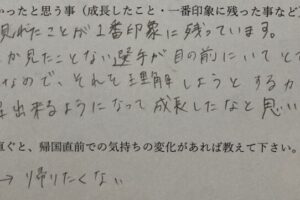 かったと思う事（成長したこと・一番印象に残った事など
見れたことが1番印象に残っています。
か見たことない選手が目の前にいてと
なので、それを理解しようとするか
出来るようになって成長したなと思い
直ぐと、帰国直前での気持ちの変化があれば教えて下さい。
→ 帰りたくない